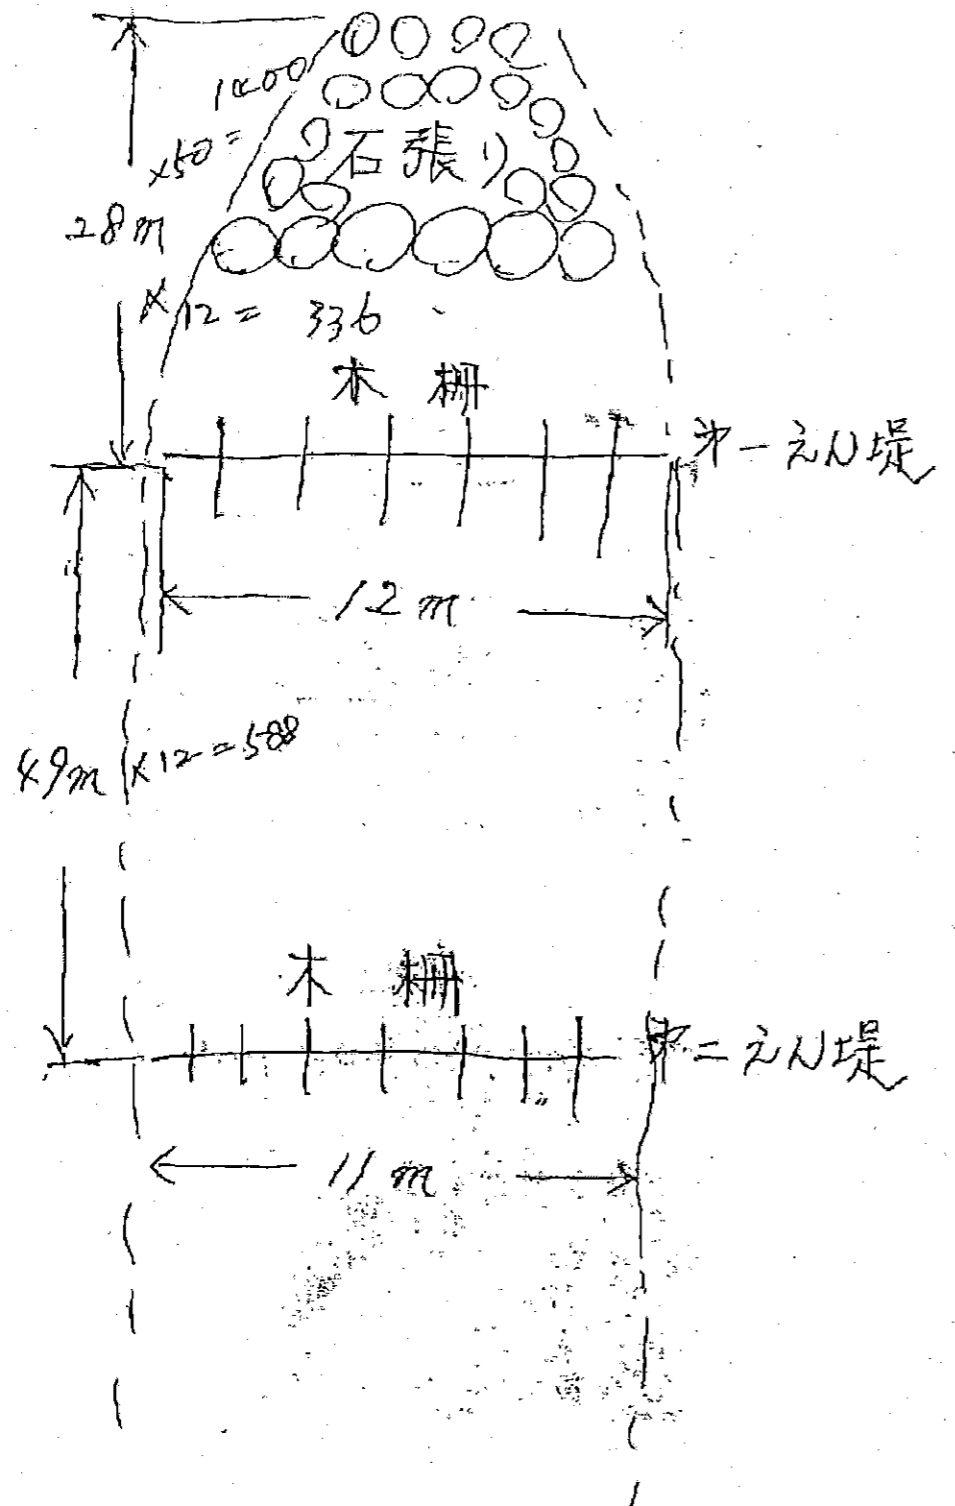 ×50=1400
石張り
28m
×12=336
木柵
第一えん堤
12m
49m×12=588
木柵
第二えん堤
11m